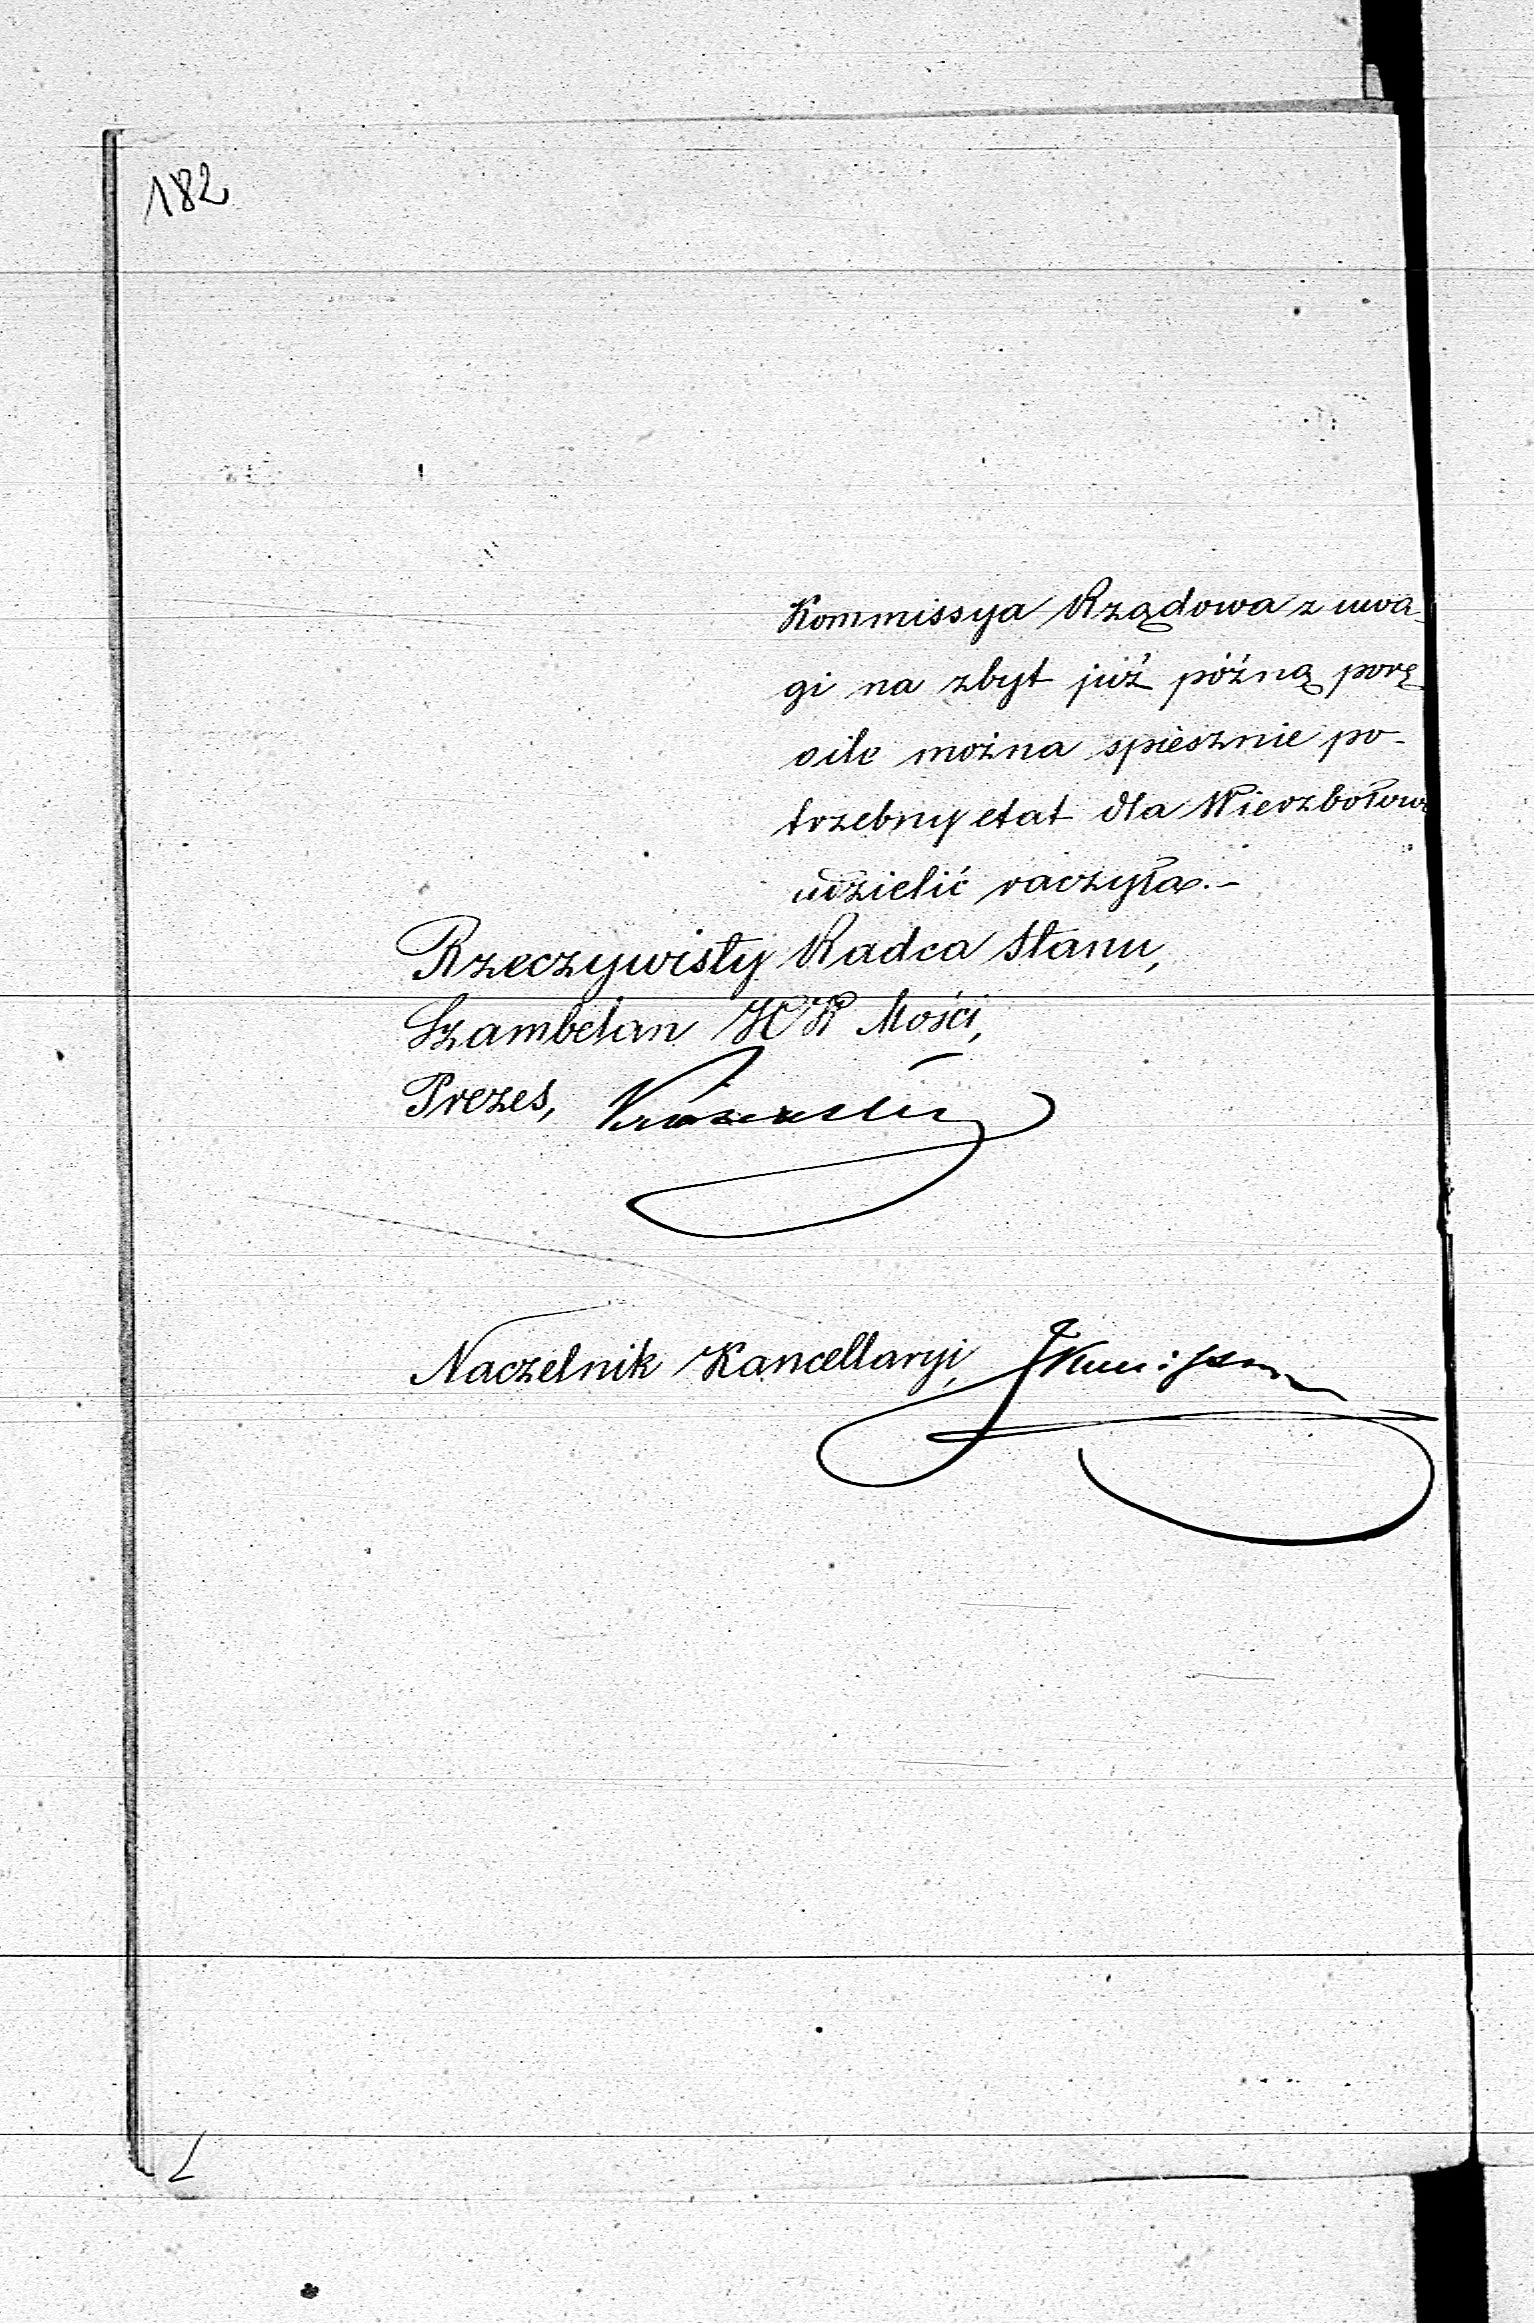 182
Kommissya Rządowa z uwa-
gi na zbyt już późną porę
oile można spiesznie po-
trzebny etat dla Wierzbołowa
udzielić raczyła.-
Rzeczywisty Radca Stanu,
Szambelan JCK Mości,
Prezes,
Naczelnik Kancellaryi,